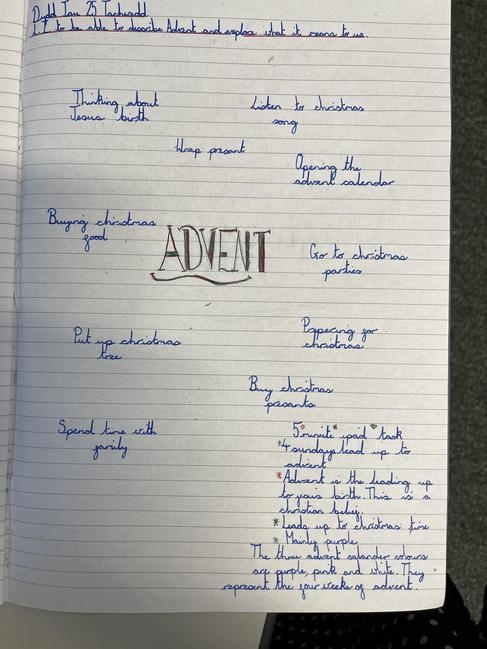 Dydd Iau 25 Tachwedd
L.I to be able to describe Advent and explore what it means to us.
Thinking about
Jesus birth
Listen to christmas
song
Wrap present
Opening the
advent calendar
Buying christmas
food
ADVENT
Go to christmas
parties
Put up christmas
tree
Peppering for
christmas
Buy christmas
pesants
Spend time with
family
5 minite ipad task
*4 sundays lead up to
advent
*Advent is the leading up
to jesus birth. This is a
christian belief.
*Leads up to christmas time
* Mainly purple
The three advent calander colours
are purple, pink and white. They
represent the four weeks of advent.